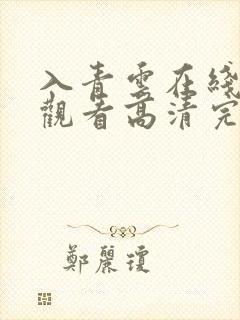 入青雲在綫
觀看高清完
鄭麗瓊